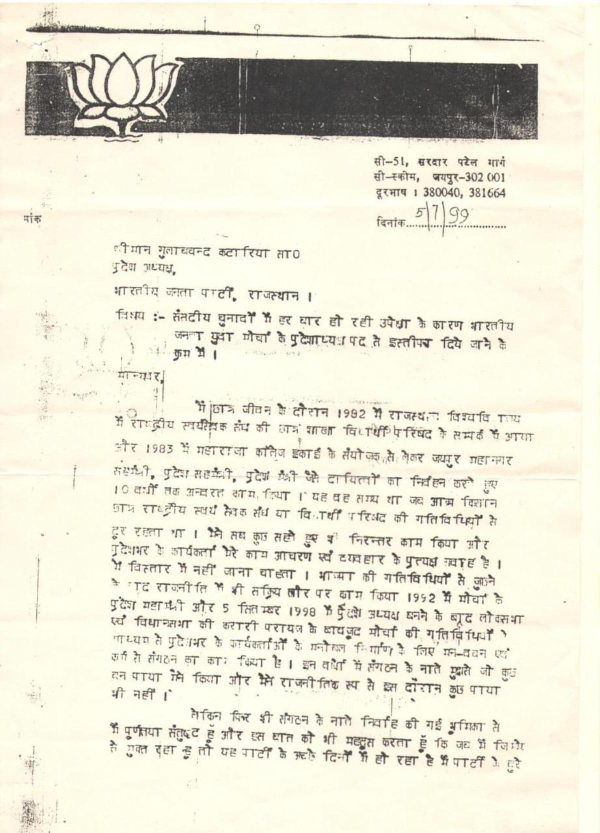 सी-51, सरदार पटेल मार्ग
सी-स्कीम, जयपुर-302 001
दूरभाष : 380040, 381664
मांक
दिनांक 5/7/99
श्रीमान गुलाबचन्द कटारिया सा0
प्रदेश अध्यक्ष,
भारतीय जनता पार्टी, राजस्थान ।
विषय :- संसदीय चुनावों में हर बार हो रही उपेक्षा के कारण भारतीय
जनता युवा मोर्चा के प्रदेशाध्यक्ष पद से इस्तीफा दिये जाने के
क्रम में ।
मान्यवर,
मैं छात्र जीवन के दौरान 1982 में राजस्थान विश्वविद्यालय
में राष्ट्रीय स्वयंसेवक संघ की छात्र शाखा विद्यार्थी परिषद के सम्पर्क में आया
और 1983 में महाराजा कॉलेज इकाई के संयोजक से लेकर जयपुर महानगर
सहमंत्री, प्रदेश सहमंत्री, प्रदेश मंत्री जैसे दायित्वों का निर्वहन करते हुए
10 वर्षों तक अनवरत काम किया । यह वह समय था जब आम किसान
छात्र राष्ट्रीय स्वयं सेवक संघ या विद्यार्थी परिषद की गतिविधियों से
दूर रहता था । मैंने सब कुछ सहते हुए भी निरन्तर काम किया और
प्रदेशभर के कार्यकर्ता मेरे काम आचरण एवं व्यवहार के प्रत्यक्ष गवाह है ।
मैं विस्तार में नहीं जाना चाहता । भाजपा की गतिविधियों से जुड़ने
के बाद राजनीति में भी सक्रिय तौर पर काम किया 1992 में मोर्चा के
प्रदेश महामंत्री और 5 सितम्बर 1998 में प्रदेश अध्यक्ष बनने के बाद लोकसभा
एवं विधानसभा की करारी पराजय के बावजूद मोर्चा की गतिविधियों के
माध्यम से प्रदेशभर के कार्यकर्ताओं के मनोबल निर्माण के लिए मन-वचन एवं
कर्म से संगठन का काम किया है । इन वर्षों में संगठन के नाते मुझसे जो कुछ
बन पाया मैंने किया और मैंने राजनीतिक रूप से इस दौरान कुछ पाया
भी नहीं ।
लेकिन फिर भी संगठन के नाते निर्वाह की गई भूमिका से
मैं पूर्णतया संतुष्ट हूँ और इस बात को भी महसूस करता हूँ कि जब मैं
से मुक्त रहा हूं तो यह पार्टी के अच्छे दिनों में हो रहा है मैं पार्टी के बुरे